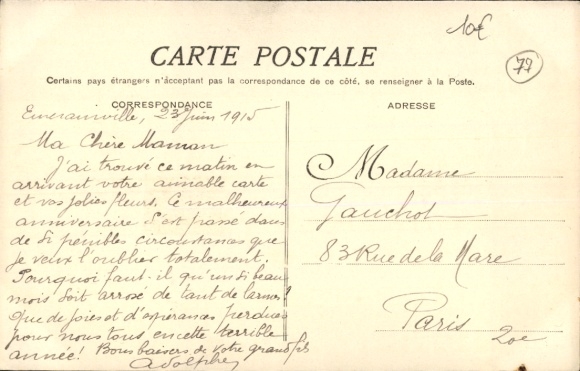 10€
79
CARTE POSTALE
Certains pays étrangers n'acceptant pas la correspondance de ce côté, se renseigner à la Poste.
CORRESPONDANCE
Emerainville, 23 Juin 1915
Ma Chère Maman
J'ai trouvé ce matin en
arrivant votre aimable carte
et vos jolies fleurs. Ce malheureux
anniversaire s'est passé dans
de si pénibles circonstances que
je veux l'oublier totalement.
Pourquoi faut-il qu'un si beau
mois soit arrosé de tant de larmes!
Que de joies et d'espérances perdues
pour nous tous en cette terrible
année! Bons baisers de votre grand fils
Adolphe
ADRESSE
Madame
Gauchot
83 Rue de la Mare
Paris
20e